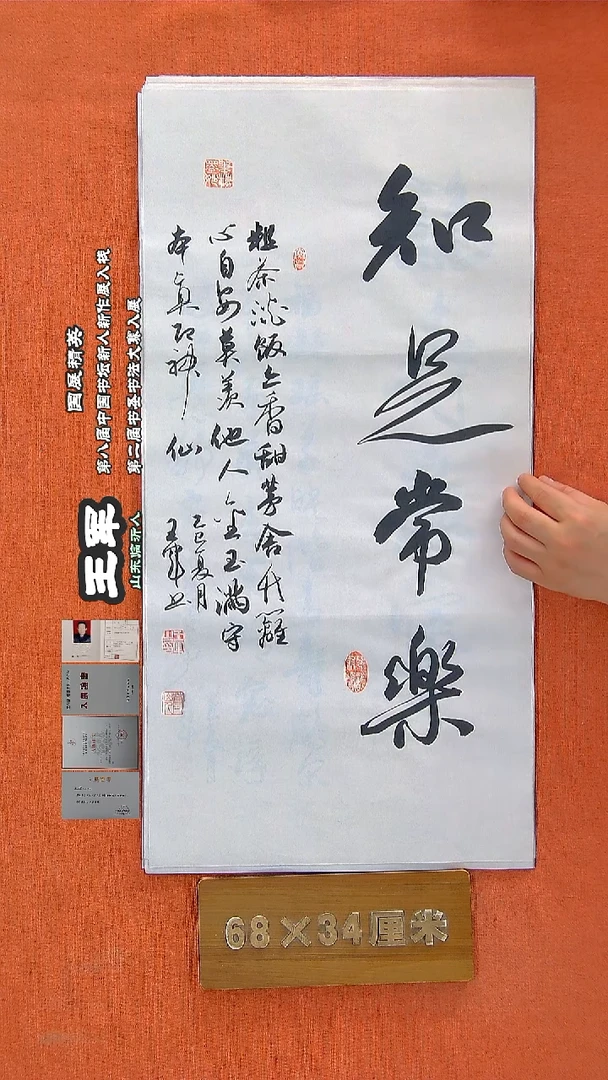 知足常樂
粗茶淡飯亦香甜茅舍竹籬
心自安莫羨他人金玉滿守
本真即神仙
乙巳夏月
王军书
国展精英
第八届中国书坛新人新作展入展
第二届书圣书法大赛入展
王军
山东临沂人
入展证书
68×34厘米